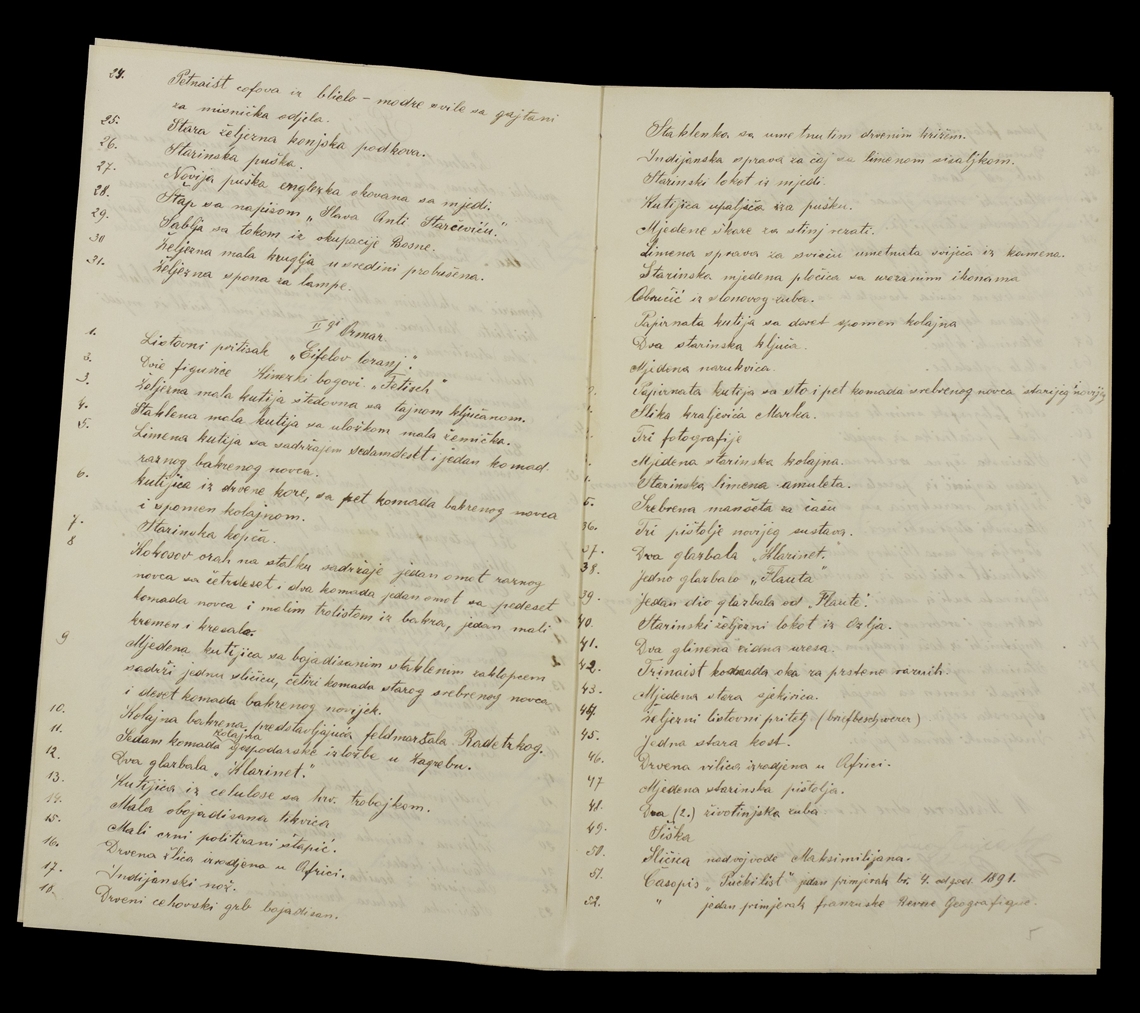 24. Petnaist cofova iz blielo - modre svile sa gajtani
za misnička odjela.
25. Stara željezna konjska podkova.
26. Starinska puška.
27. Novija puška englezka okovana sa mjedi.
28. Štap sa napisom „Slava Anti Starčeviću."
29. Sablja sa tokom iz okupacije Bosne.
30 Željezna mala kruglja u sredini probušena.
31. Željezna spona za lampe.
II gi Ormar.
1. Listovni pritisak „Eifelov toranj."
2. Dvie figurice Kinezki bogovi „Fetisch"
3. Željezna mala kutija štedovna sa tajnom ključanom.
4. Staklena mala kutija sa uložkom mala žemička.
5. Limena kutija sa sadržajem sedamdeset i jedan komad
raznog bakrenog novca.
6. Kutijica iz drvene kore, sa pet komada bakrenog novca
i spomen kolajnom.
7. Starinska kopča.
8 Kokosov orah na stalku sadržaje jedan omot raznog
novca sa četrdeset i dva komada jedan omot sa pedeset
komada novca i malim trolistom iz bakra, jedan mali
kremen i kresalo.
9 Mjedena kutijica sa bojadisanim staklenim zaklopcem
sadrži jednu sličicu, četiri komada starog srebrenog novca,
i devet komada bakrenog novijeg.
10. Kolajna bakrena predstavljajuća feldmaršala Radetzkog.
11. Sedam komada kolajna gospodarske izložbe u Zagrebu.
12. Dva glazbala „Klarinet."
13. Kutijica iz celulose sa hrv. trobojkom.
14. Mala obojadisana tikvica
15. Mali crni politirani štapić.
16. Drvena žlica izradjena u Africi.
17. Indijanski nož.
18. Drveni cehovski grb bojadisan.
Staklenka sa umetnutim drvenim križem.
Indijanska sprava za čaj sa limenom sisaljkom.
Starinski lokot iz mjedi.
Kutijica upaljača za pušku.
Mjedene škare za stinj rezati.
Limena sprava za svieću umetnuta svijeća iz kamena.
Starinska mjedena pločica sa urezanim ikonama
Obručić iz slonovog zuba.
Papirnata kutija sa devet spomen kolajna
Dva starinska ključa.
Mjedena narukvica.
Papirnata kutija sa sto i pet komada srebrenog novca starijeg i novijeg
Slika kraljevića Marka.
Tri fotografije
Mjedena starinska kolajna.
Starinska limena amuleta.
5. Srebrena manšeta za čašu
36. Tri pištolje novijeg sustava.
37. Dva glazbala „Klarinet."
38. Jedno glazbalo „Flauta"
39. Jedan dio glazbala od „Flaute".
40. Starinski željezni lokot iz Ozlja.
41. Dva glinena zidna uresa.
42. Trinaist komada oka za prstene raznih.
43. Mjedena stara sjekirica.
44. Željezni listovni pritelj (briefbeschwerer)
45. Jedna stara kost.
46. Drvena vilica izradjena u Africi.
47 Mjedena starinska pištolja.
48. Dva (2.) životinjska zuba
49. Šiška
50. Sličica nadvojvode Maksimilijana.
51. Časopis „Pučki list" jedan primjerak br. 4. od god. 1891.
52. " jedan primjerak franzuske Revue Geografique.
5